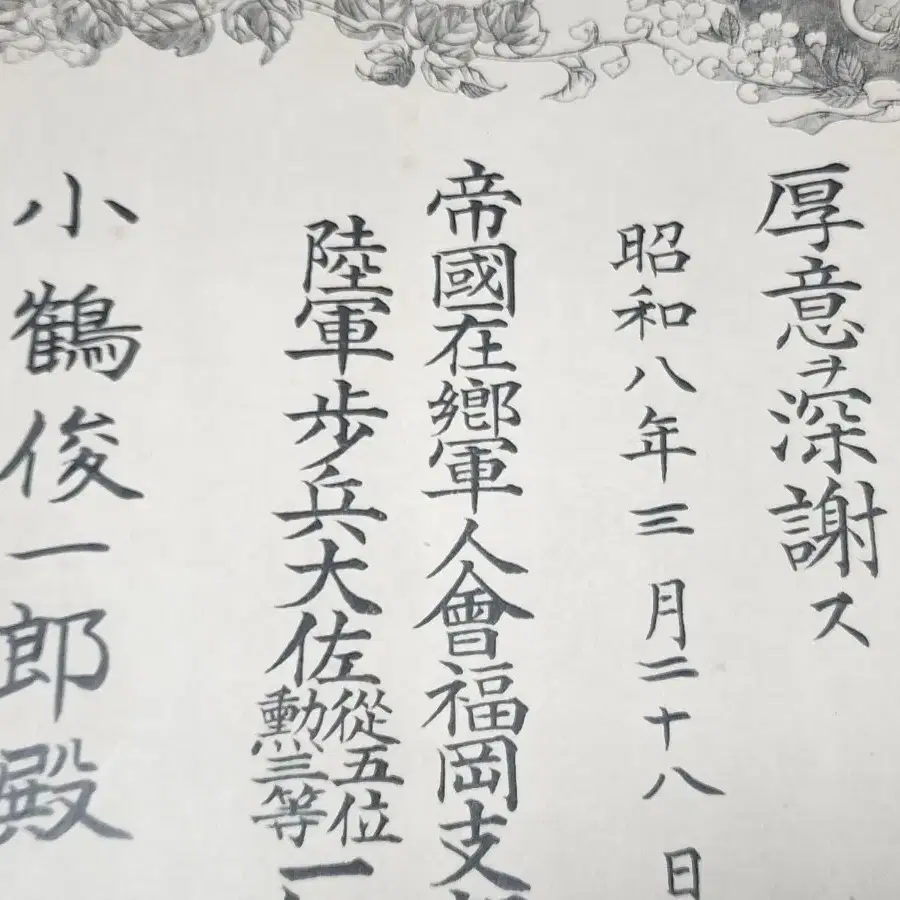 厚意ヲ深謝ス
昭和八年三月二十八日
帝國在鄕軍人會福岡支
陸軍步兵大佐從五位勳三等
小鶴俊一郎殿